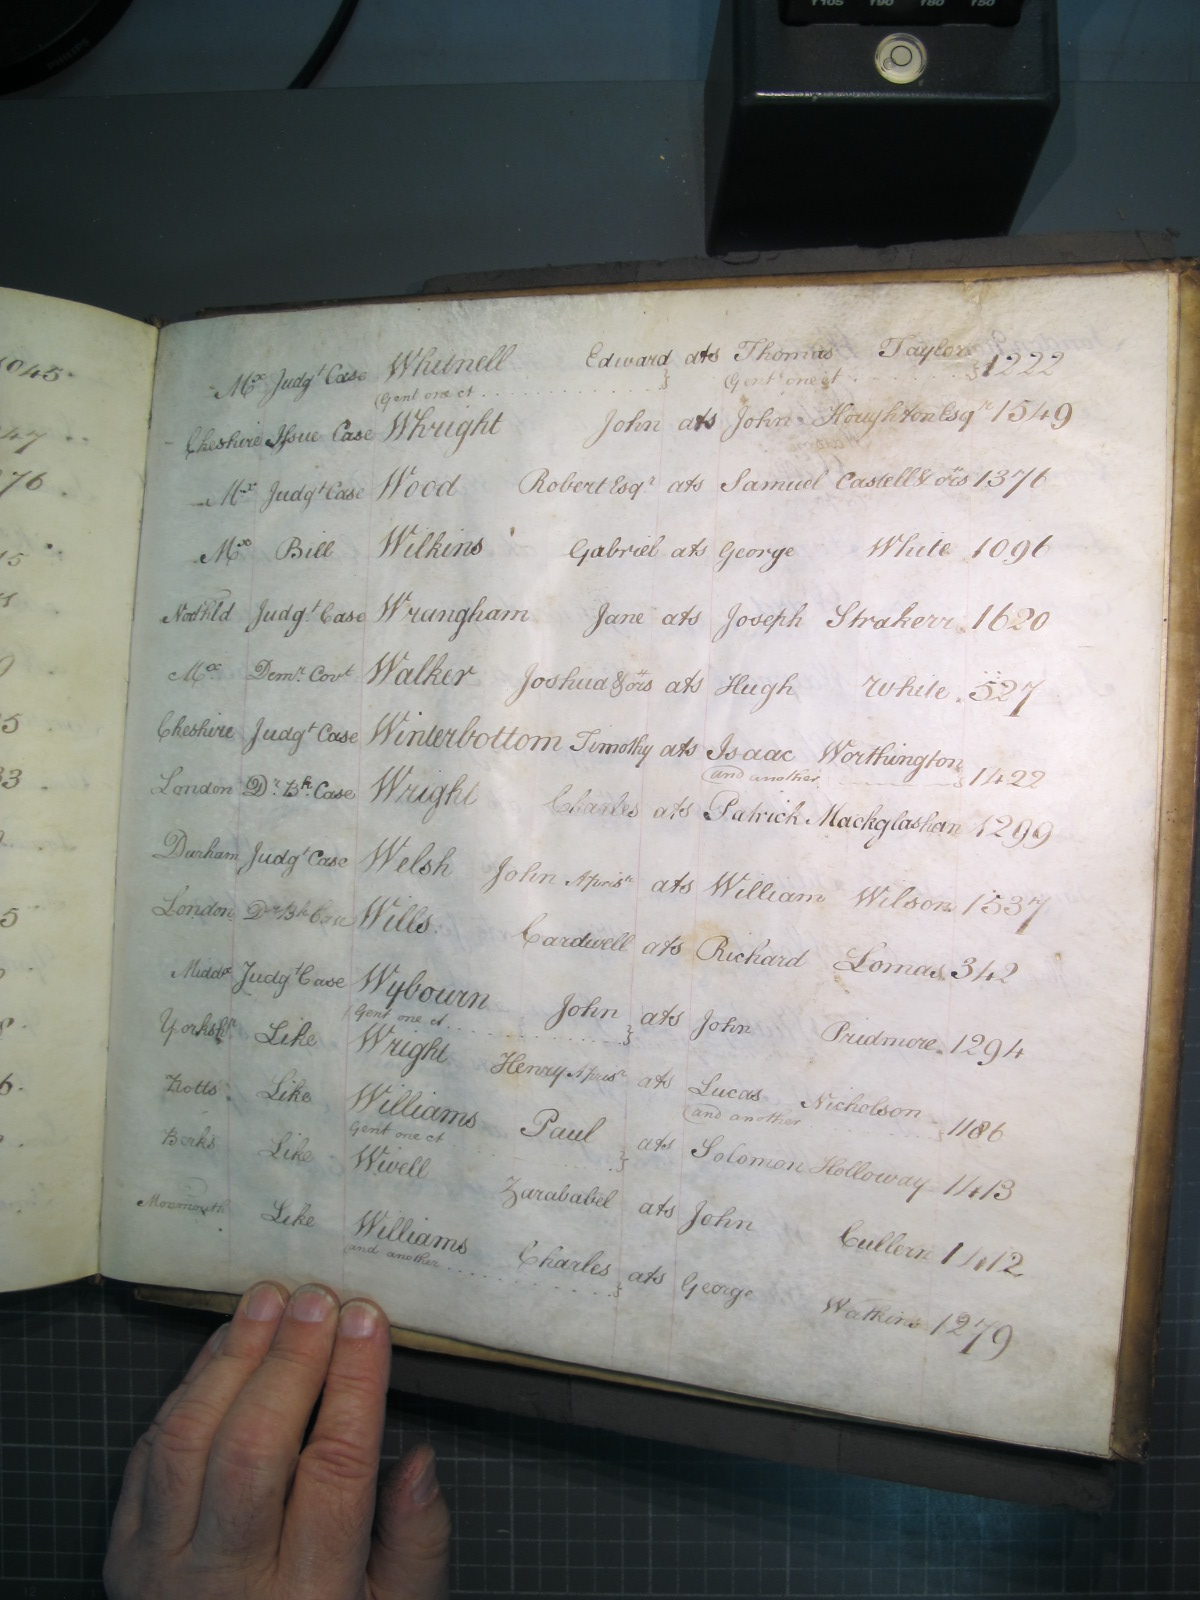 T105 T90 T80 T50
PHILIPS
1045
47
76
15
5
33
5
6
Mx Judgt Case Whitnell Edward ats Thomas Taylor 1222
(Gent one et (Gent one et
Cheshire Issue Case Whright John ats John Houghton Esqr 1549
Mx Judgt Case Wood Robert Esqr ats Samuel Castell & ors 1376
Mx Bill Wilkins Gabriel ats George White 1096
Nothld Judgt Case Wrangham Jane ats Joseph Strakerr 1620
Mx Demr Covt Walker Joshua & ors ats Hugh White 527
Cheshire Judgt Case Winterbottom Timothy ats Isaac Worthington
(and another 1422
London Dr Bk Case Wright Charles ats Patrick Mackglashan 1299
Durham Judgt Case Welsh John ats William Wilson 1537
London Dr Bk Case Wills Cardwell ats Richard Lomas 342
Middx Judgt Case Wybourn John ats John Pridmore 1294
(Gent one et
Yorkshr Like Wright Henry ats Lucas Nicholson
(and another 1186
Notts Like Williams Paul ats Solomon Holloway 1413
Gent one et
Berks Like Wivell Zarababel ats John Cullern 1412
Monmouth Like Williams Charles ats George Watkins 1279
(and another